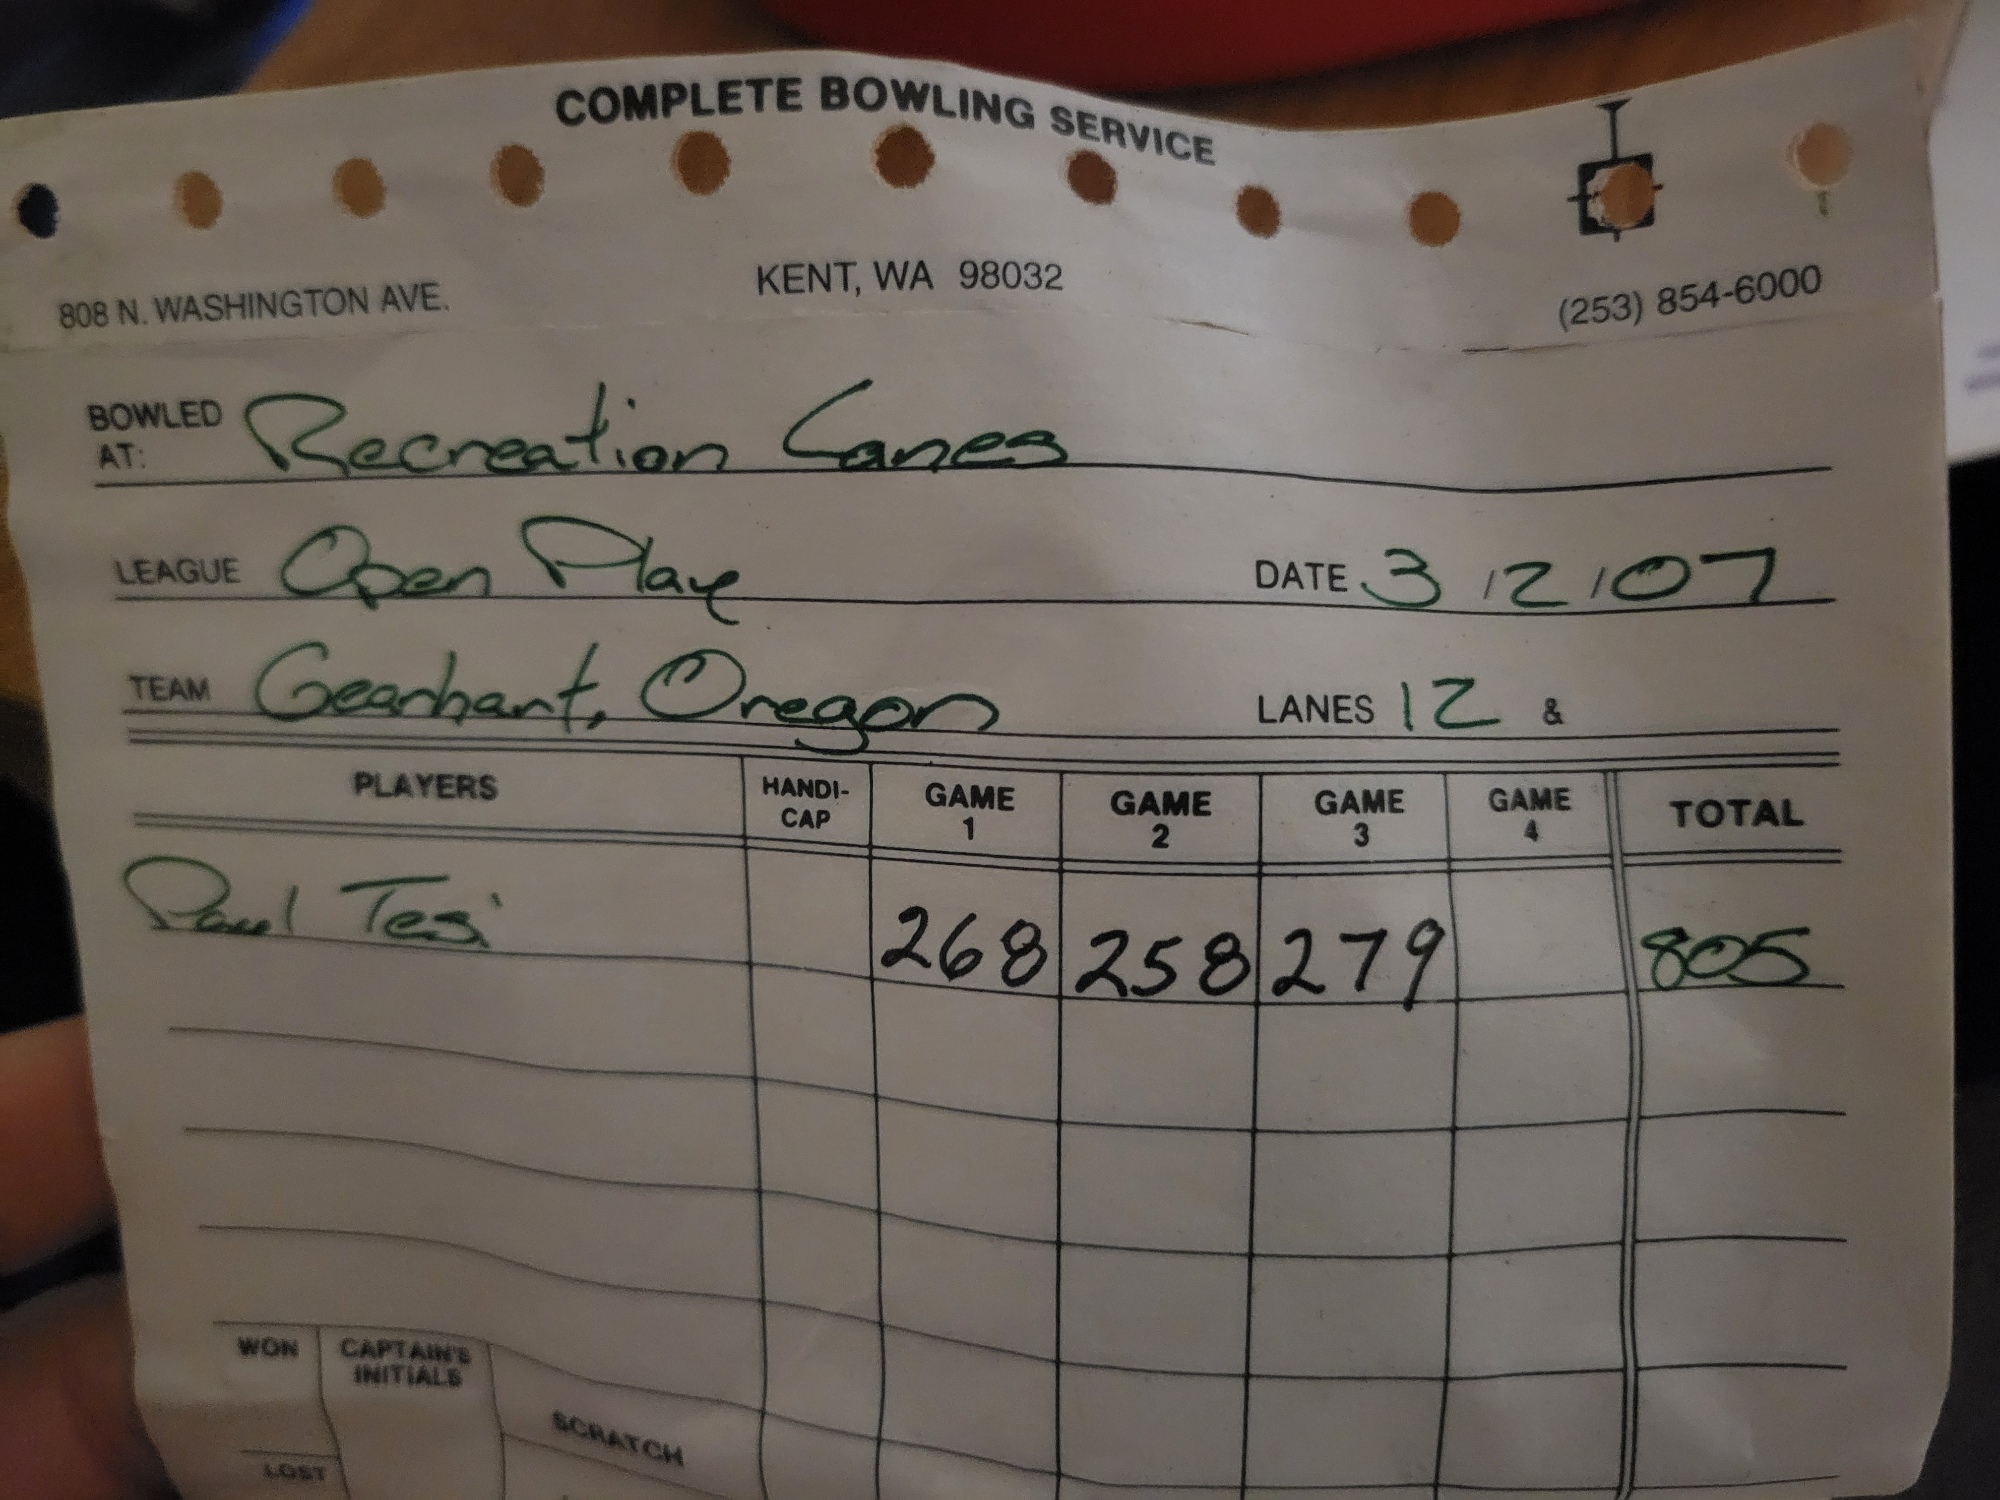 COMPLETE BOWLING SERVICE
808 N. WASHINGTON AVE. KENT, WA 98032 (253) 854-6000
BOWLED AT: Recreation Lanes
LEAGUE Open Play DATE 3/2/07
TEAM Gearhart, Oregon LANES 12 &
PLAYERS HANDI-CAP GAME 1 GAME 2 GAME 3 GAME 4 TOTAL
Paul Tesi 268 258 279 805
WON CAPTAIN'S INITIALS
SCRATCH
LOST